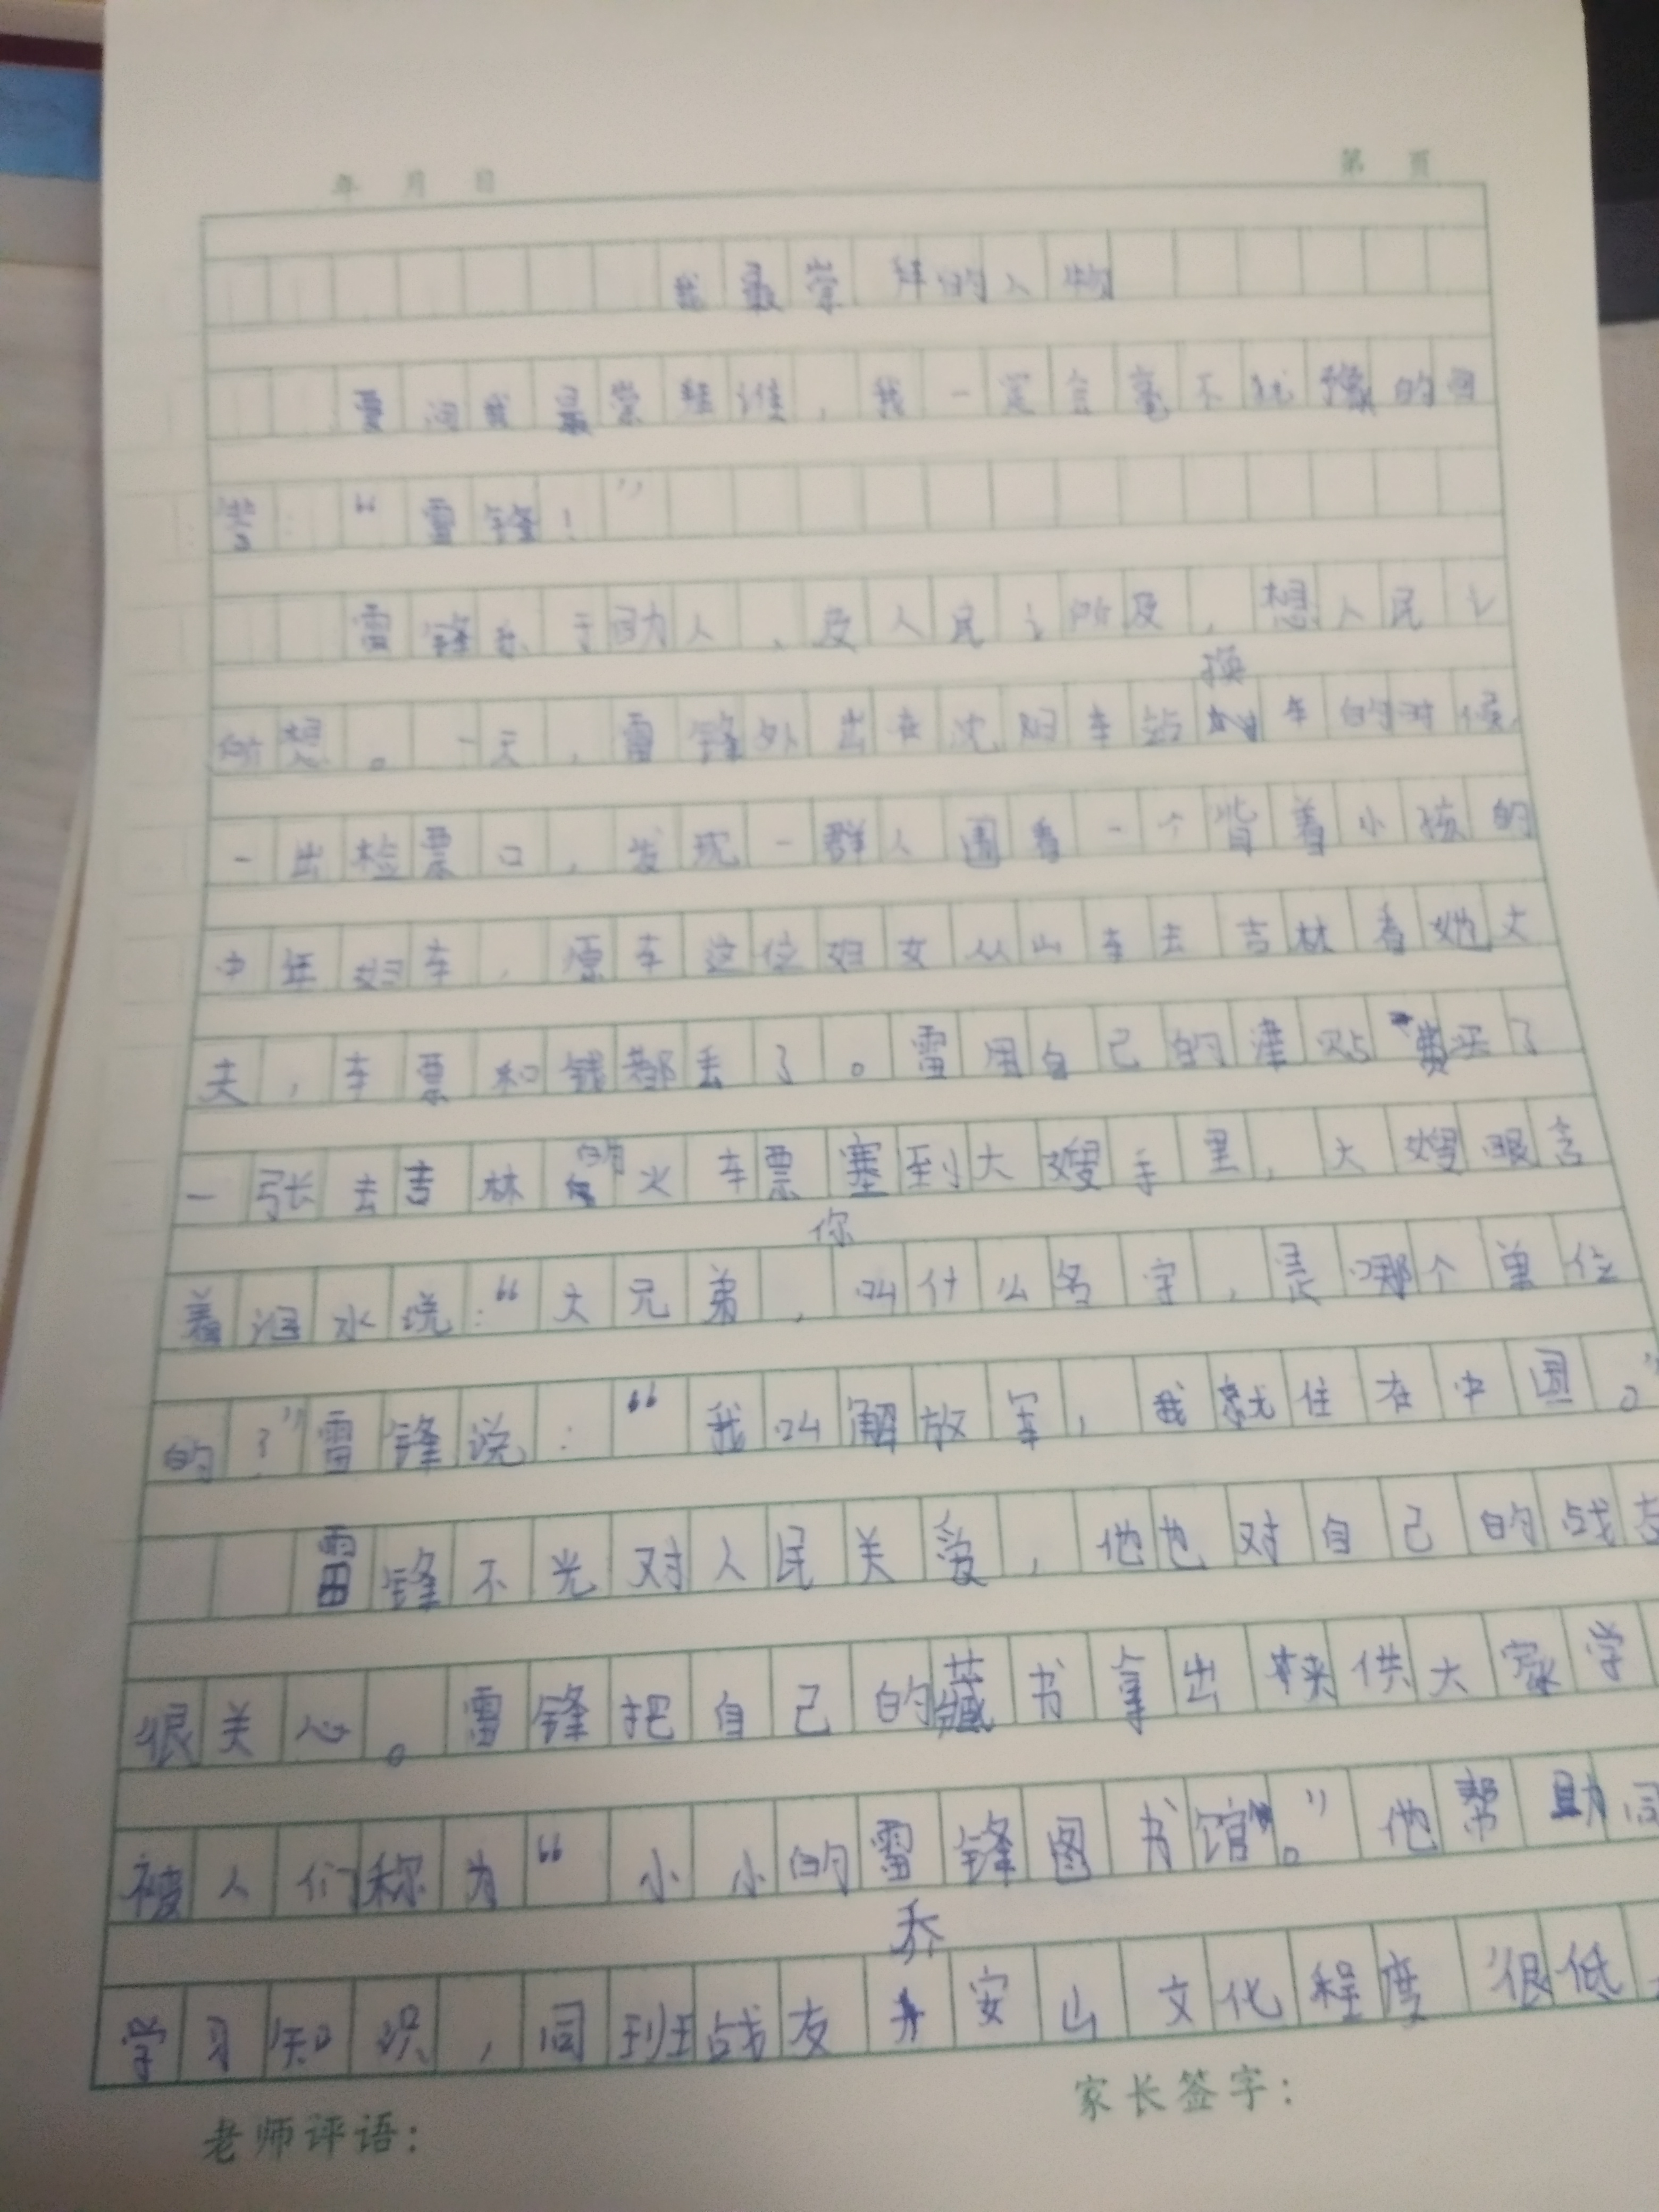 年 月 日 第 页
我最崇拜的人物
要问我最崇拜谁，我一定会毫不犹豫的回
答：“雷锋！”
雷锋乐于助人，及人民之所及，想人民之
所想。一天，雷锋外出在沈阳车站换车的时候，
一出检票口，发现一群人围着一个背着小孩的
中年妇车，原车这位妇女从山车去吉林看她丈
夫，车票和钱都丢了。雷用自己的津贴费买了
一张去吉林的火车票塞到大嫂手里，大嫂眼含
着泪水说：“大兄弟，你叫什么名字，是哪个单位
的？”雷锋说：“我叫解放军，我就住在中国。”
雷锋不光对人民关爱，他也对自己的战友
很关心。雷锋把自己的藏书拿出来供大家学
被人们称为“小小的雷锋图书馆。”他帮助同
学习知识，同班战友乔安山文化程度很低
老师评语： 家长签字：